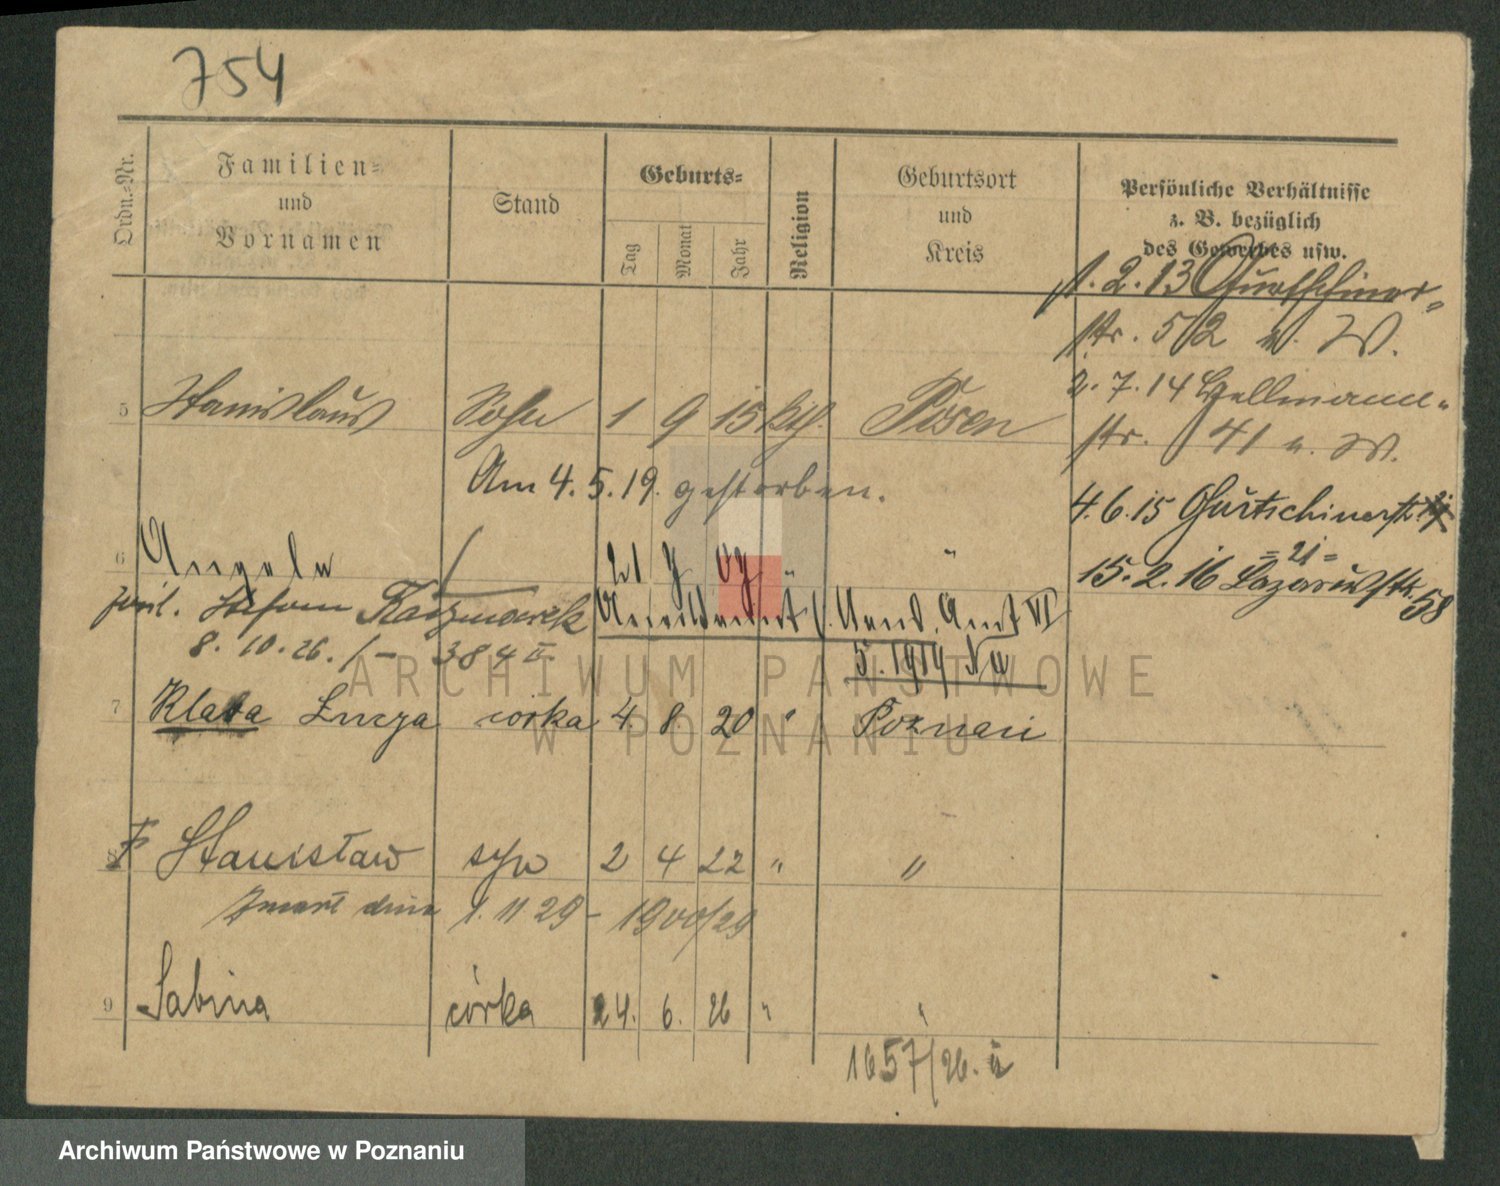 754
Ordn.-Nr.
Familien-
und
Vornamen
Stand
Geburts-
Tag
Monat
Jahr
Religion
Geburtsort
und
Kreis
Persönliche Verhältnisse
z. B. bezüglich
des Gewerbes usw.
1.2.13 Gurtschiner-
str. 52 b. W.
2.7.14
str. 41 b. W.
5 Stanislaus Sohn 1 9 15 kth. Posen
Am 4.5.19. gestorben.
4.6.15 Gurtschinerstr.
= 21 =
15.2.16 Lazarusstr. 58
6 Angela 21 Amt VI
Stefan Kaczmarek
8.10.26. 384 II
5. 1919
7 Klara Łucja córka 4 8 20 " Poznań
8 Stanisław syn 2 4 22 " "
Zmarł dnia 1.11 29 - 1900/29
9 Sabina córka 24. 6. 26 " "
1657/26. II
ARCHIWUM PAŃSTWOWE
W POZNANIU
Archiwum Państwowe w Poznaniu